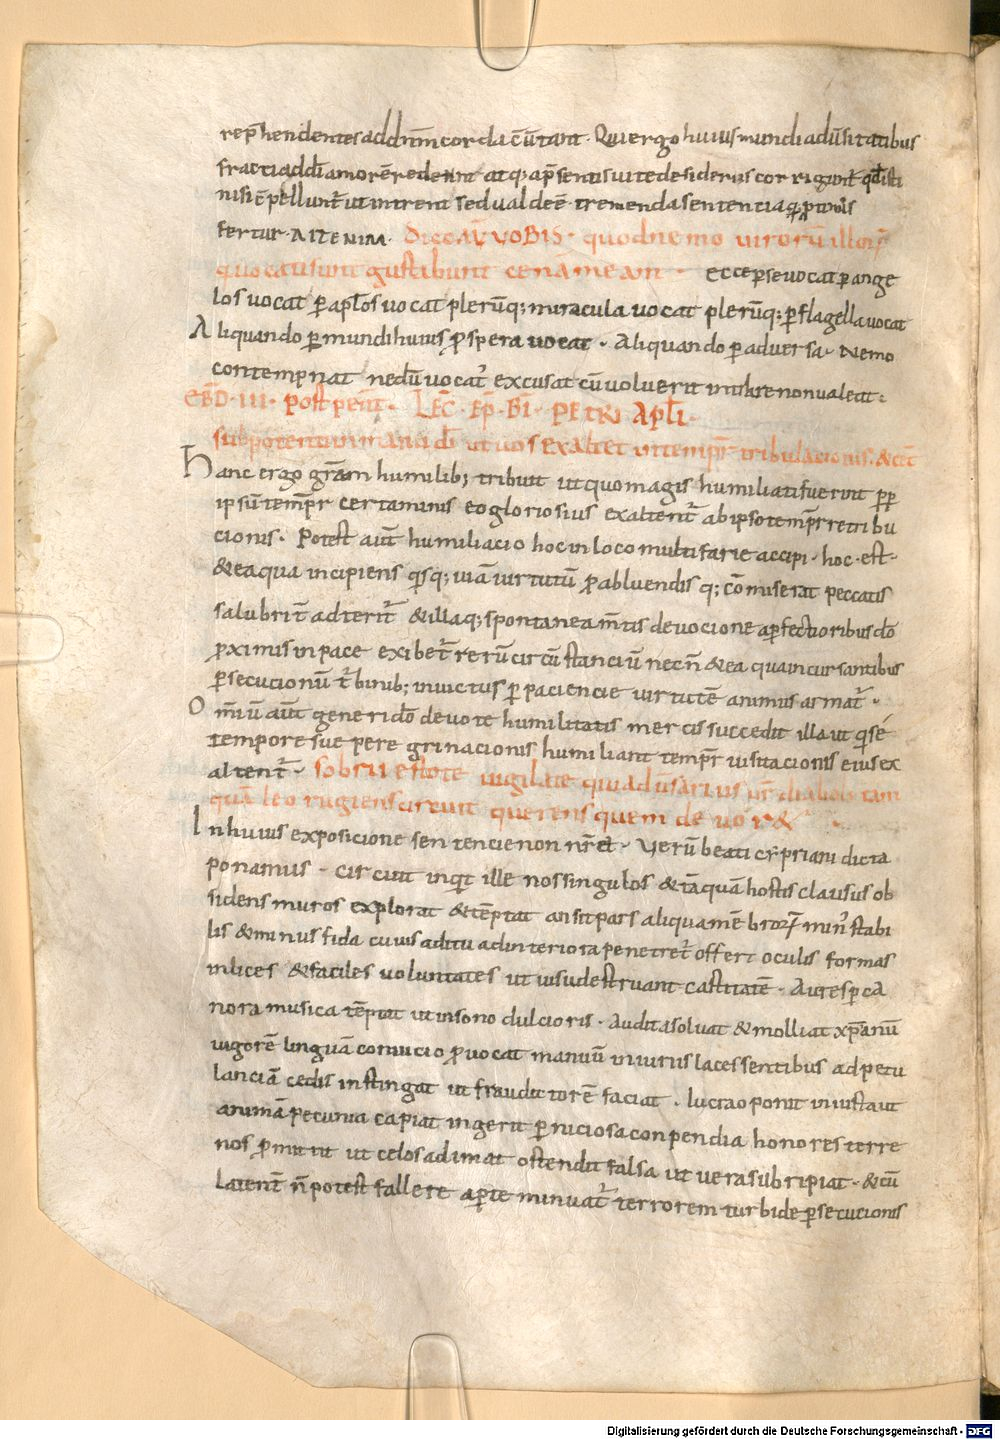 rep̄hendentes addn̄m corda cūtant. Qui ergo huius mundi adūsitatibus
fracti addī amorē redeunt atq; ap̄sentis uite desideriis corrigunt̄ qd̄ isti
nisi cōpelluntr̄ ut intrent sed ualde ē tremenda sententia quę ptinus
fertur. AIT ENIM. Dico AŪ VOBIS. quod nemo uirorū illorum
qui uocati sunt gustabunt cenā meam. ecce per se uocat p ange
los uocat p apłos uocat plerūq; miracula uocat plerūq; p flagella uocat
Aliquando p mundi huius prospera uocat. Aliquando p aduersa. Nemo
contempnat ne dū uocatr̄ excusat cū uoluerit intrare non ualeat.
EBD. III. post pent̄. LEC̄. EP̄. BĪ. PETRI APŁI.
sub potenti manu dī ut uos exaltet in tempr̄ tribulacionis. & cet̄
Hanc ergo grām humilib; tribuit ut quo magis humiliati fuerint pp
ipsū tempr̄ certaminis eo gloriosius exaltentr̄ ab ipso tempr̄ retribu
cionis. Potest aut̄ humiliacio hoc in loco multifarie accipi. hoc. est.
& ea qua incipiens qisq; uiā uirtutū p abluendis q; cōmiserat peccatis
salubritr̄ adteritr̄ & illa q; spontanea m̄tis deuocione a pfectioribus dō
pximis in pace exibetr̄ rerū circū stanciū nec n̄ & ea qua incursantibus
psecucionū tr̄binib; inuictus p paciencie uirtutē animus armatr̄.
Om̄iū aut̄ generi dō deuote humilitatis mercis succedit illa ut qi sé
tempore sue peregrinacionis humiliant tempr̄ uisitacionis eius ex
altentr̄. sobrii estote uigilate quia dūsarius ur̄ diabolus tam
quā leo rugiens circuit querens quem deuor&
In huius exposicione sentencie non nr̄ &. Verū beati cypriani dicta
ponamus. Circuit inqit ille nos singulos & tāquā hostis clausus ob
sidens muros explorat & tēptat an sit pars aliqua mēbrorum minus stabi
lis & minus fida cuius aditu ad interiora penetretr̄ offert oculis formas
inlices & faciles uoluntates ut uisu destruant castitatē. Aures p ca
nora musica tēptat ut in sono dulcioris. Audita soluat & molliat xp̄ianū
uigorē linguā conuicio prouocat manuū iniuriis lacessentibus ad petu
lanciā cedis instingat ut fraudit torē faciat. lucra oponit iniusta ut
animā pecunia capiat ingerit pniciosa conpendia honores terre
nos promittit ut celos adimat ostendit falsa ut uera subripiat. & cū
latent̄ n̄ potest fallere apte minuatr̄ terrorem turbide psecucionis
Digitalisierung gefördert durch die Deutsche Forschungsgemeinschaft - DFG